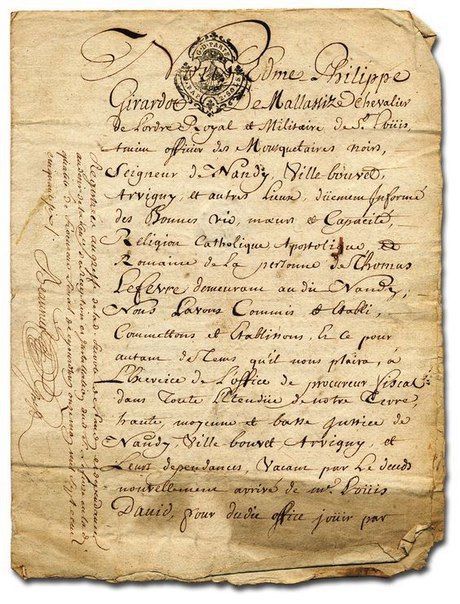 Nous Edme Philippe
Girardot De Mallassize chevalier
de Lordre Royal et Militaire de St. Loüis,
Ancien officier des Mousquetaires noirs,
Seigneur de Nandy, Ville bouvet,
Arvigny, et autres Lieux, düement Informé
des Bonnes vie, mœurs et Capacité
Religion Catholique Apostolique et
Romaine de La personne de Thomas
Lefevre demeurant audit Nandy,
Nous L'avons Commis et Etabli,
Commettons et Etablissons, Et ce pour
autant de Tems qu'il nous plaira, à
L'Exercice de L'office de procureur Fiscal
dans Toute L'Etendüe de notre Terre,
haute, moyenne et basse Justice de
Nandy, Ville bouvet Arvigny, et
Leurs dependances, Vacant par Le deceds
nouvellement arrivé de me. Loüis
David, pour dudit office joüir par
Registrée au greffe de